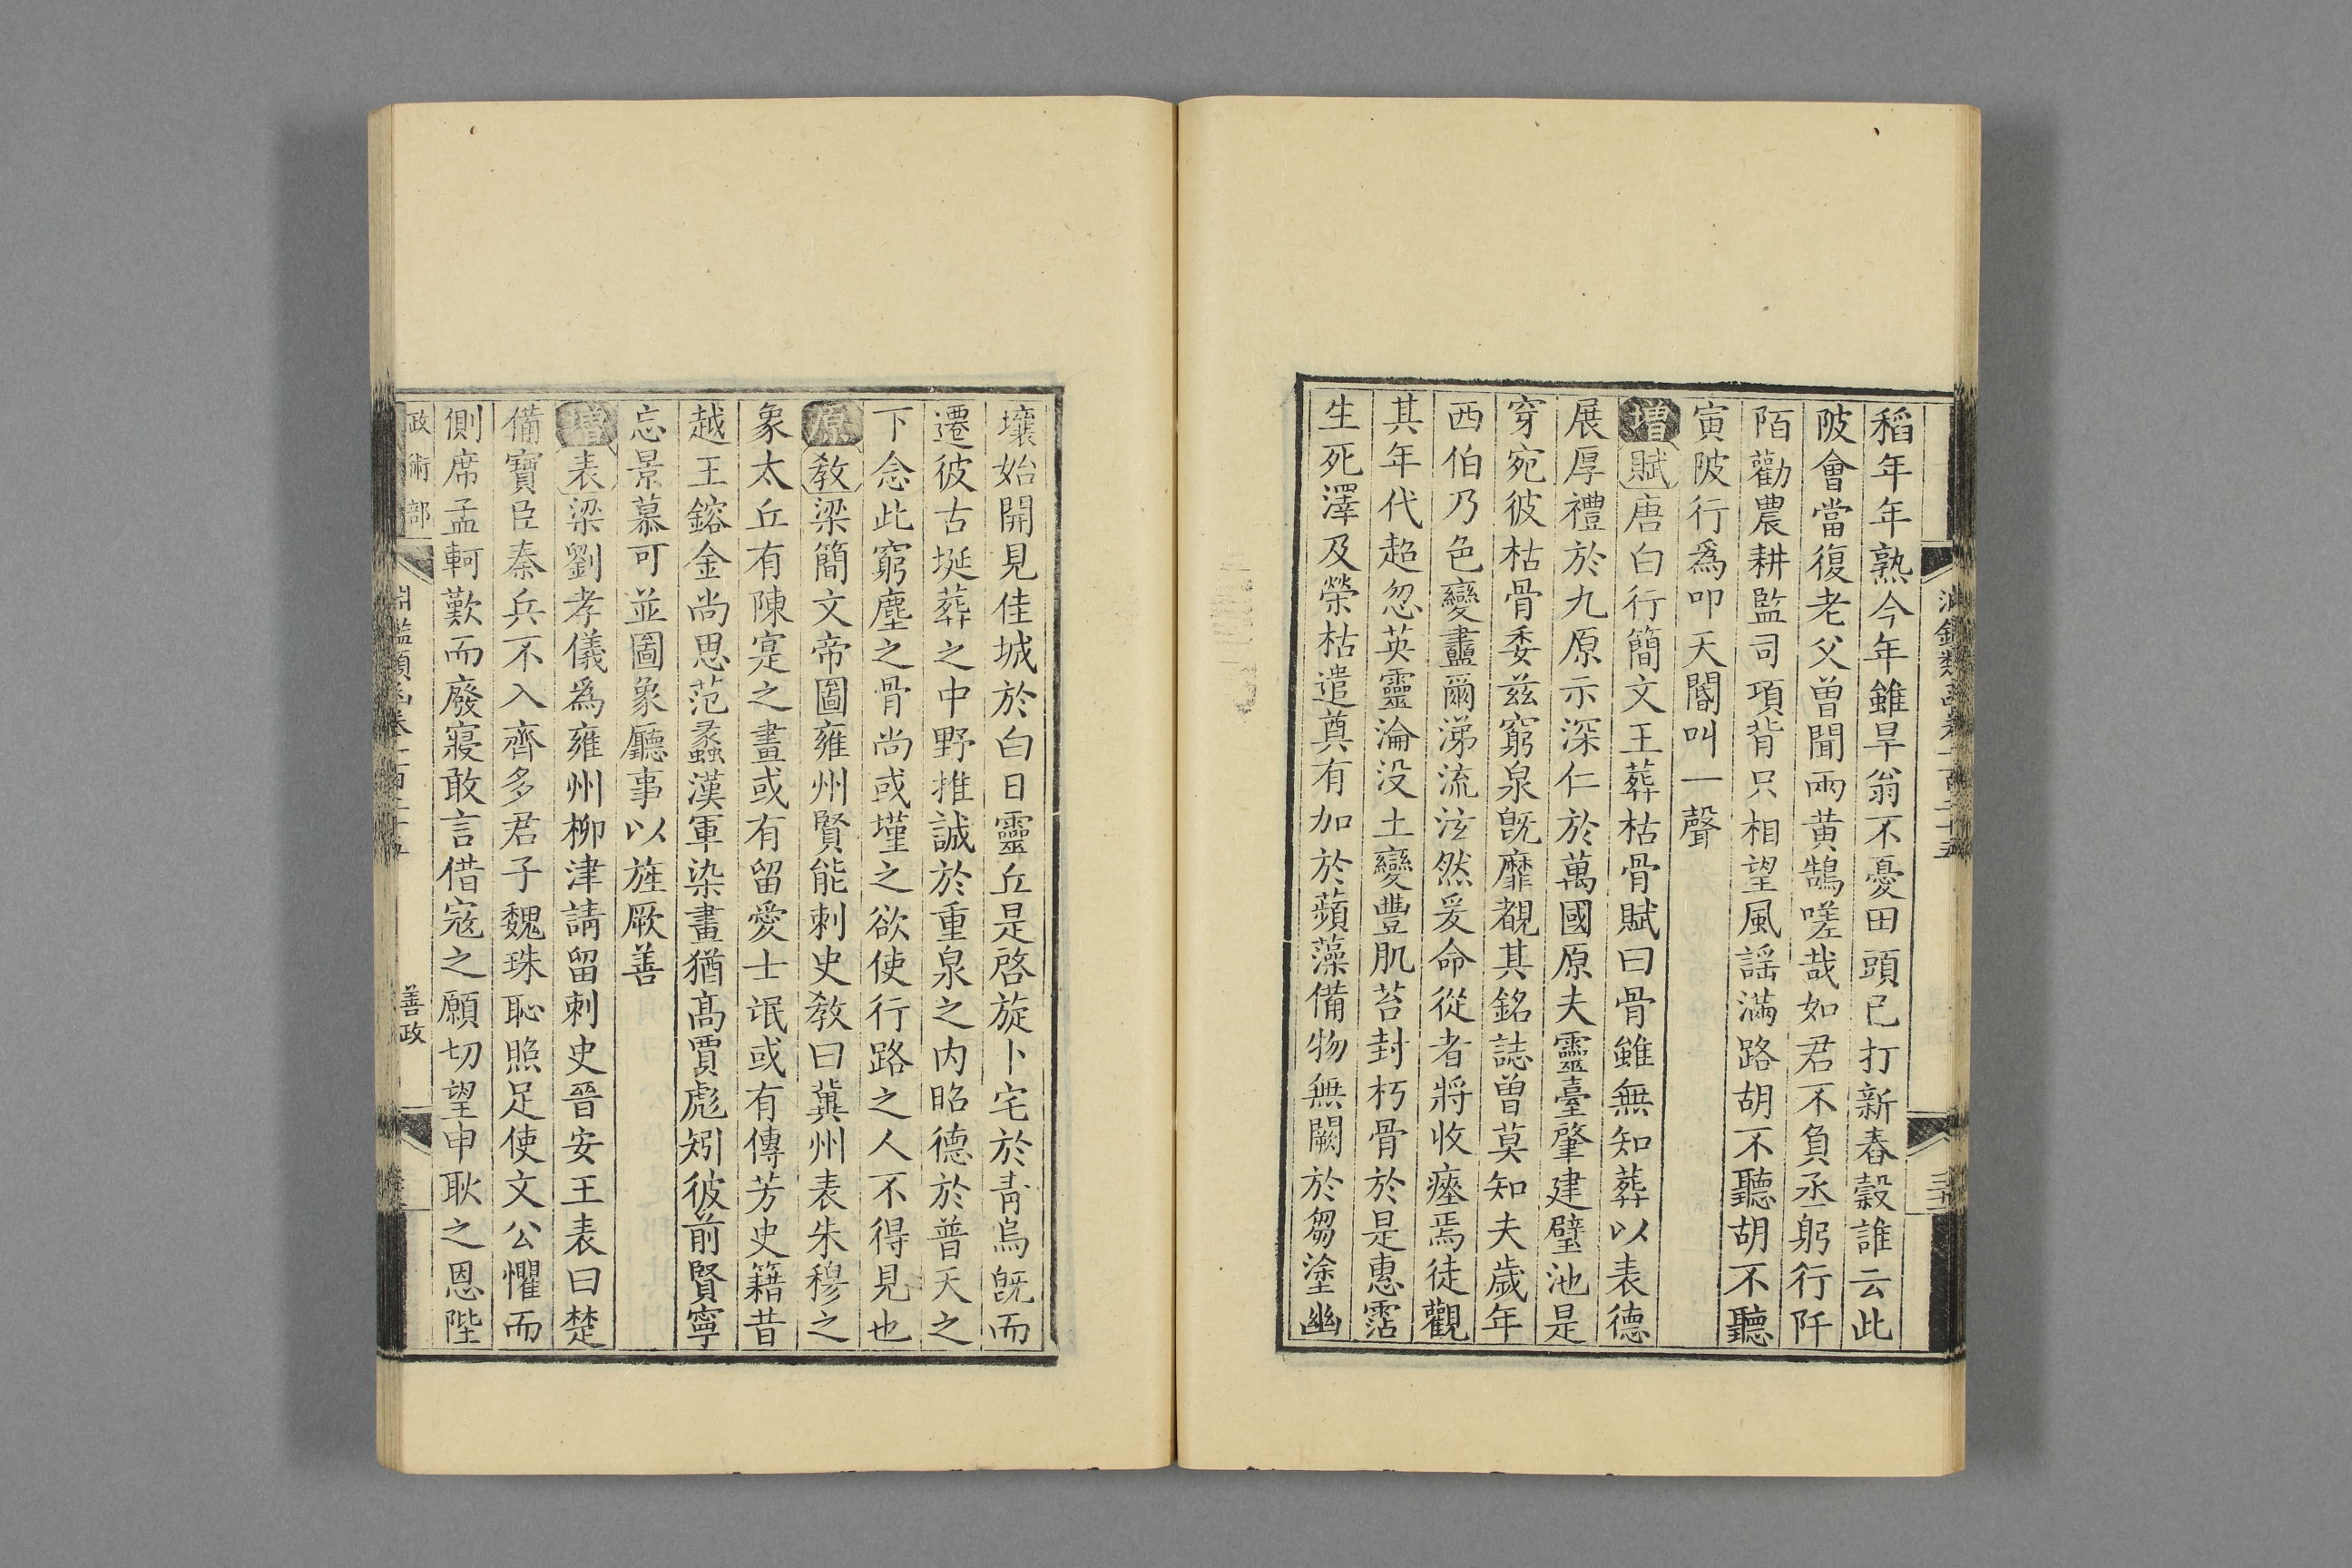 稻年年熟今年雖旱翁不憂田頭已打新舂穀誰云此
陂會當復老父曾聞兩黃鵠嗟哉如君不負丞躬行阡
陌勸農耕監司項背只相望風謡滿路胡不聽胡不聽
寅陂行爲叩天閽叫一聲
增賦唐白行簡文王葬枯骨賦曰骨雖無知葬以表德
展厚禮於九原示深仁於萬國原夫靈臺肇建璧池是
穿宛彼枯骨委兹窮泉旣靡覩其銘誌曾莫知夫歲年
西伯乃色變衋爾涕流泫然爰命從者將收瘞焉徒觀
其年代超忽英靈淪没土變豐肌苔封朽骨於是惠霑
生死澤及榮枯遣奠有加於蘋藻備物無闕於芻塗幽
壤始開見佳城於白日靈丘是啓旋卜宅於靑烏旣而
遷彼古埏葬之中野推誠於重泉之内昭德於普天之
下念此窮塵之骨尚或墐之欲使行路之人不得見也
原教梁簡文帝圖雍州賢能刺史教曰冀州表朱穆之
象太丘有陳寔之畫或有留愛士氓或有傳芳史籍昔
越王鎔金尚思范蠡漢軍染畫猶高賈彪矧彼前賢寧
忘景慕可並圖象廳事以旌厥善
增表梁劉孝儀爲雍州柳津請留刺史晉安王表曰楚
備寶臣秦兵不入齊多君子魏珠恥照足使文公懼而
側席孟軻歎而廢寢敢言借寇之願切望申耿之恩陛
政術部
善政